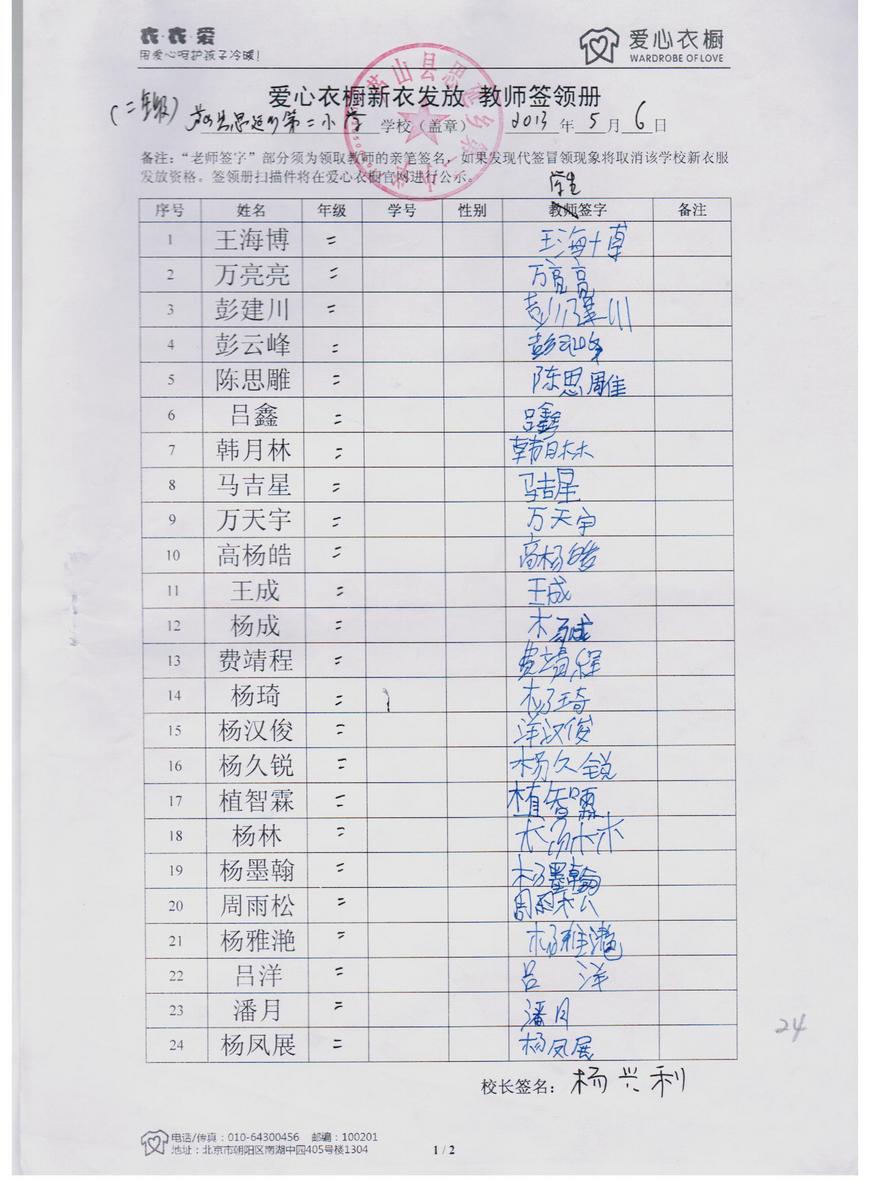 衣·衣·爱
用爱心呵护孩子冷暖!
爱心衣橱
WARDROBE OF LOVE
爱心衣橱新衣发放 教师签领册
(二年级) 第二小学 学校（盖章） 2013 年 5 月 6 日
备注：“老师签字”部分须为领取教师的亲笔签名，如果发现代签冒领现象将取消该学校新衣服
发放资格。签领册扫描件将在爱心衣橱官网进行公示。
学生
序号 姓名 年级 学号 性别 教师签字 备注
1 王海博 二 王海博
2 万亮亮 二 万亮亮
3 彭建川 二 彭建川
4 彭云峰 二 彭云峰
5 陈思雕 二 陈思雕
6 吕鑫 二 吕鑫
7 韩月林 二 韩月林
8 马吉星 二 马吉星
9 万天宇 二 万天宇
10 高杨皓 二 高杨皓
11 王成 二 王成
12 杨成 二 杨成
13 费靖程 二 费靖程
14 杨琦 二 杨琦
15 杨汉俊 二 洋汉俊
16 杨久锐 二 杨久锐
17 植智霖 二 植智霖
18 杨林 二 杨林
19 杨墨翰 二 杨墨翰
20 周雨松 二 周雨松
21 杨雅滟 二 杨雅滟
22 吕洋 二 吕 洋
23 潘月 二 潘月
24 杨凤展 二 杨凤展
24
校长签名：杨兴利
电话/传真：010-64300456 邮编：100201
地址：北京市朝阳区南湖中园405号楼1304
1 / 2